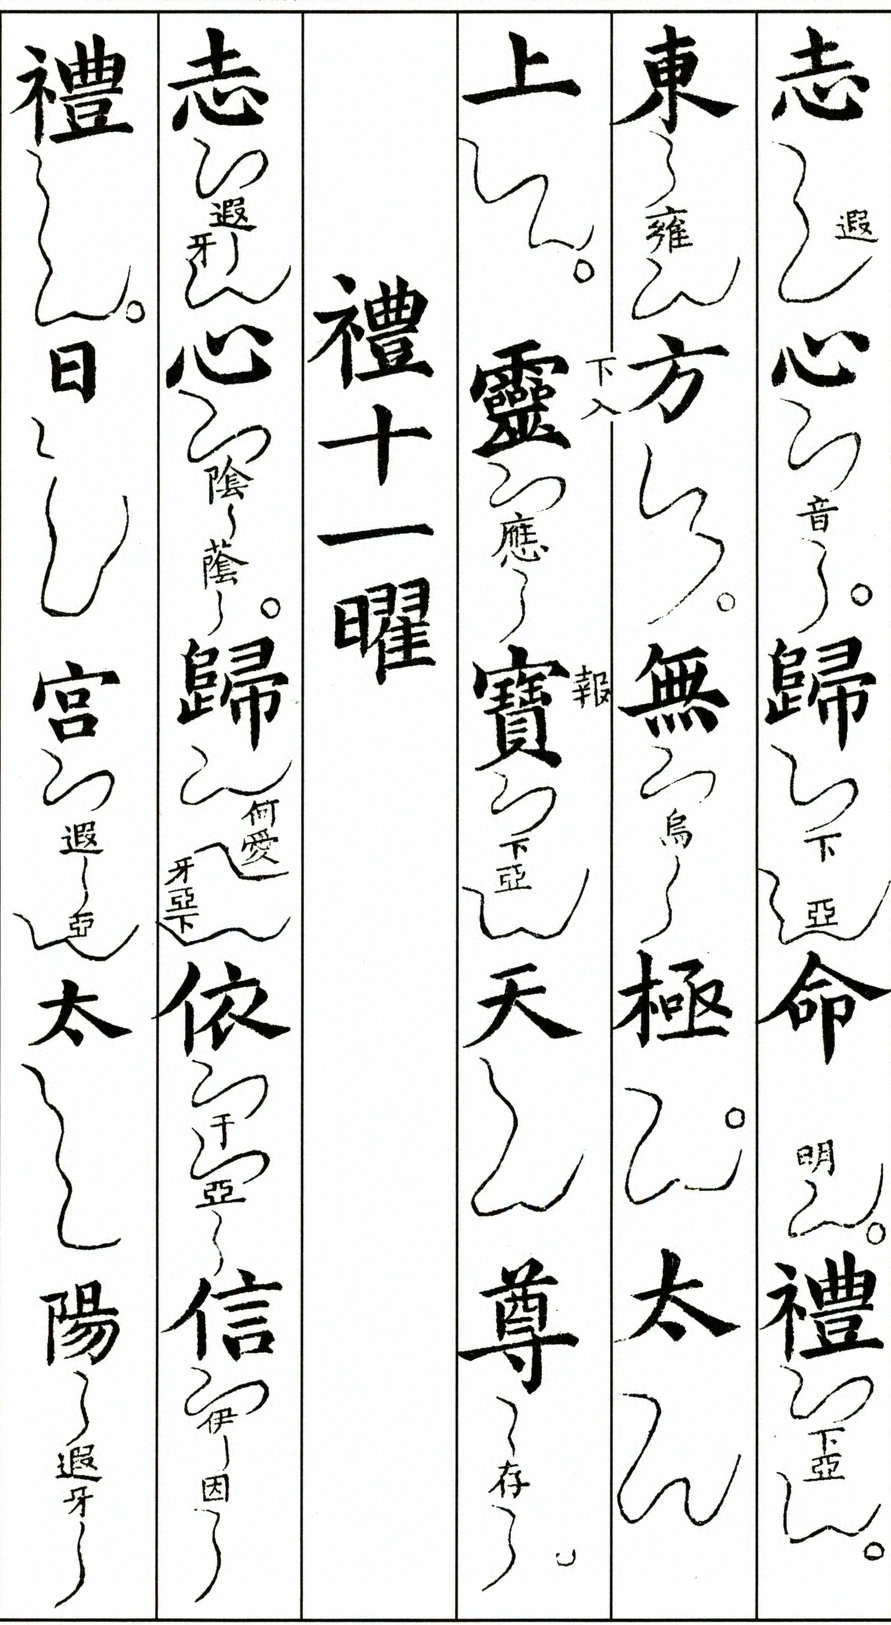 志遐心音歸下亞命明禮下亞
東雍方無烏極太
上下入靈應寶報下亞天尊存
禮十一曜
志遐牙心陰蔭歸何愛牙亞下依于亞信伊因
禮日宮遐亞太陽遐牙